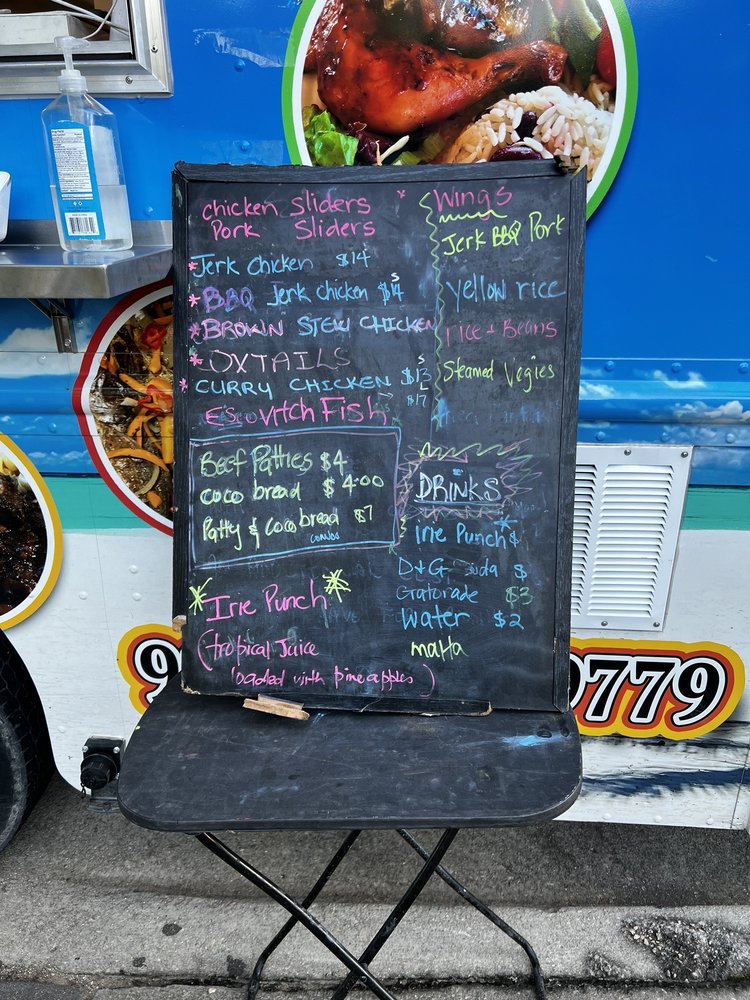 chicken sliders
Pork sliders
Jerk Chicken $14
BBQ Jerk chicken $14 S
BROWN STEW CHICKEN
OXTAILS
CURRY CHICKEN S $13
L $17
Escovitch Fish
Beef Patties $4
coco bread $4.00
Patty & coco bread $7
combos
Irie Punch
(tropical Juice
loaded with pineapples)
Wings
Jerk BBQ Pork
Yellow rice
rice + Beans
Steamed Vegies
DRINKS
irie Punch $
D+G Soda $
Gatorade $3
Water $2
malta
9
0779